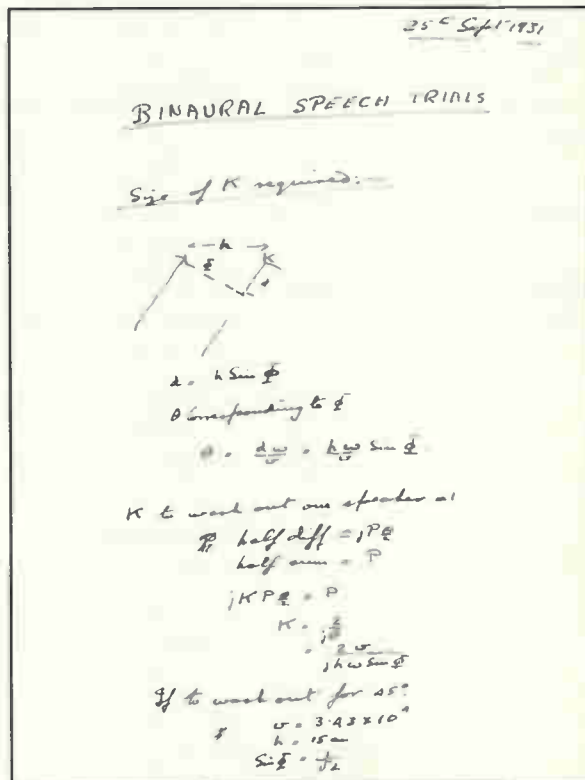 25th Sept 1931
BINAURAL SPEECH TRIALS
Size of K required:
h
Φ d
d = h Sin Φ
θ Corresponding to Φ
θ = dω/v = hω/v Sin Φ
K to wash out one speaker at
Φ half diff = jPθ/2
half sum = P
jKPθ/2 = P
K = 2/jθ
= 2v/jhω Sin Φ
If to wash out for 45°
v = 3.43 x 10⁴
h = 15 cm
Sin Φ = 1/√2